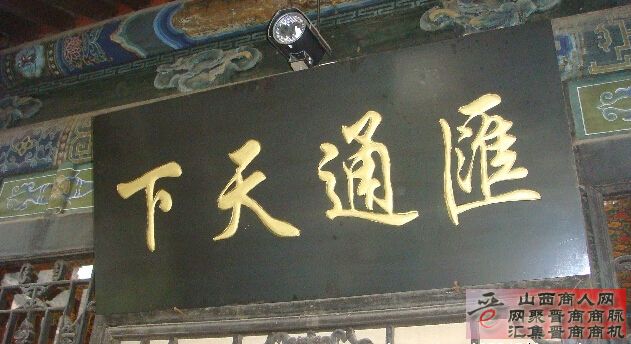 匯通天下
山西商人网
网聚晋商商脉
汇集晋商商机